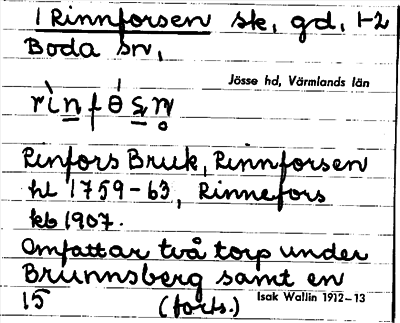 1 Rinnforsen sk, gd, 1-2
Boda sn,
Jösse hd, Värmlands län
rìnfɵ́sn̥
Rinfors Bruk, Rinnforsen
hl 1759-63, Rinnefors
kb 1907.
Omfattar två torp under
Brunnsberg samt en
15 (forts.) Isak Wallin 1912-13